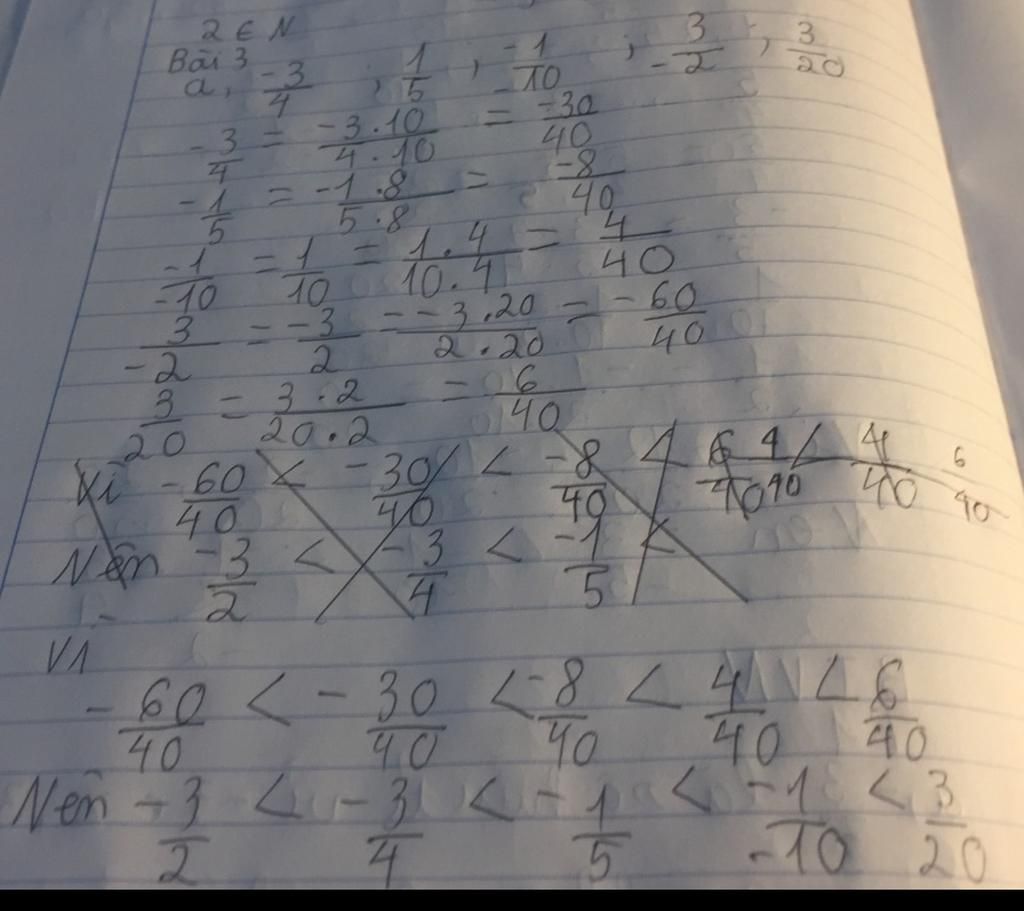 2 ∈ N
Bài 3
a, -3/4 ; 1/5 ; -1/-10 ; 3/-2 ; 3/20
-3/4 = -3.10/4.10 = -30/40
-1/5 = -1.8/5.8 = -8/40
-1/-10 = 1/10 = 1.4/10.4 = 4/40
3/-2 = -3/2 = -3.20/2.20 = -60/40
3/20 = 3.2/20.2 = 6/40
Vì -60/40 < -30/40 < -8/40 < 4/40 < 4/40 6/40
Nên -3/2 < -3/4 < -1/5 <
Vì
-60/40 < -30/40 < -8/40 < 4/40 < 6/40
Nên -3/2 < -3/4 < -1/5 < -1/-10 < 3/20